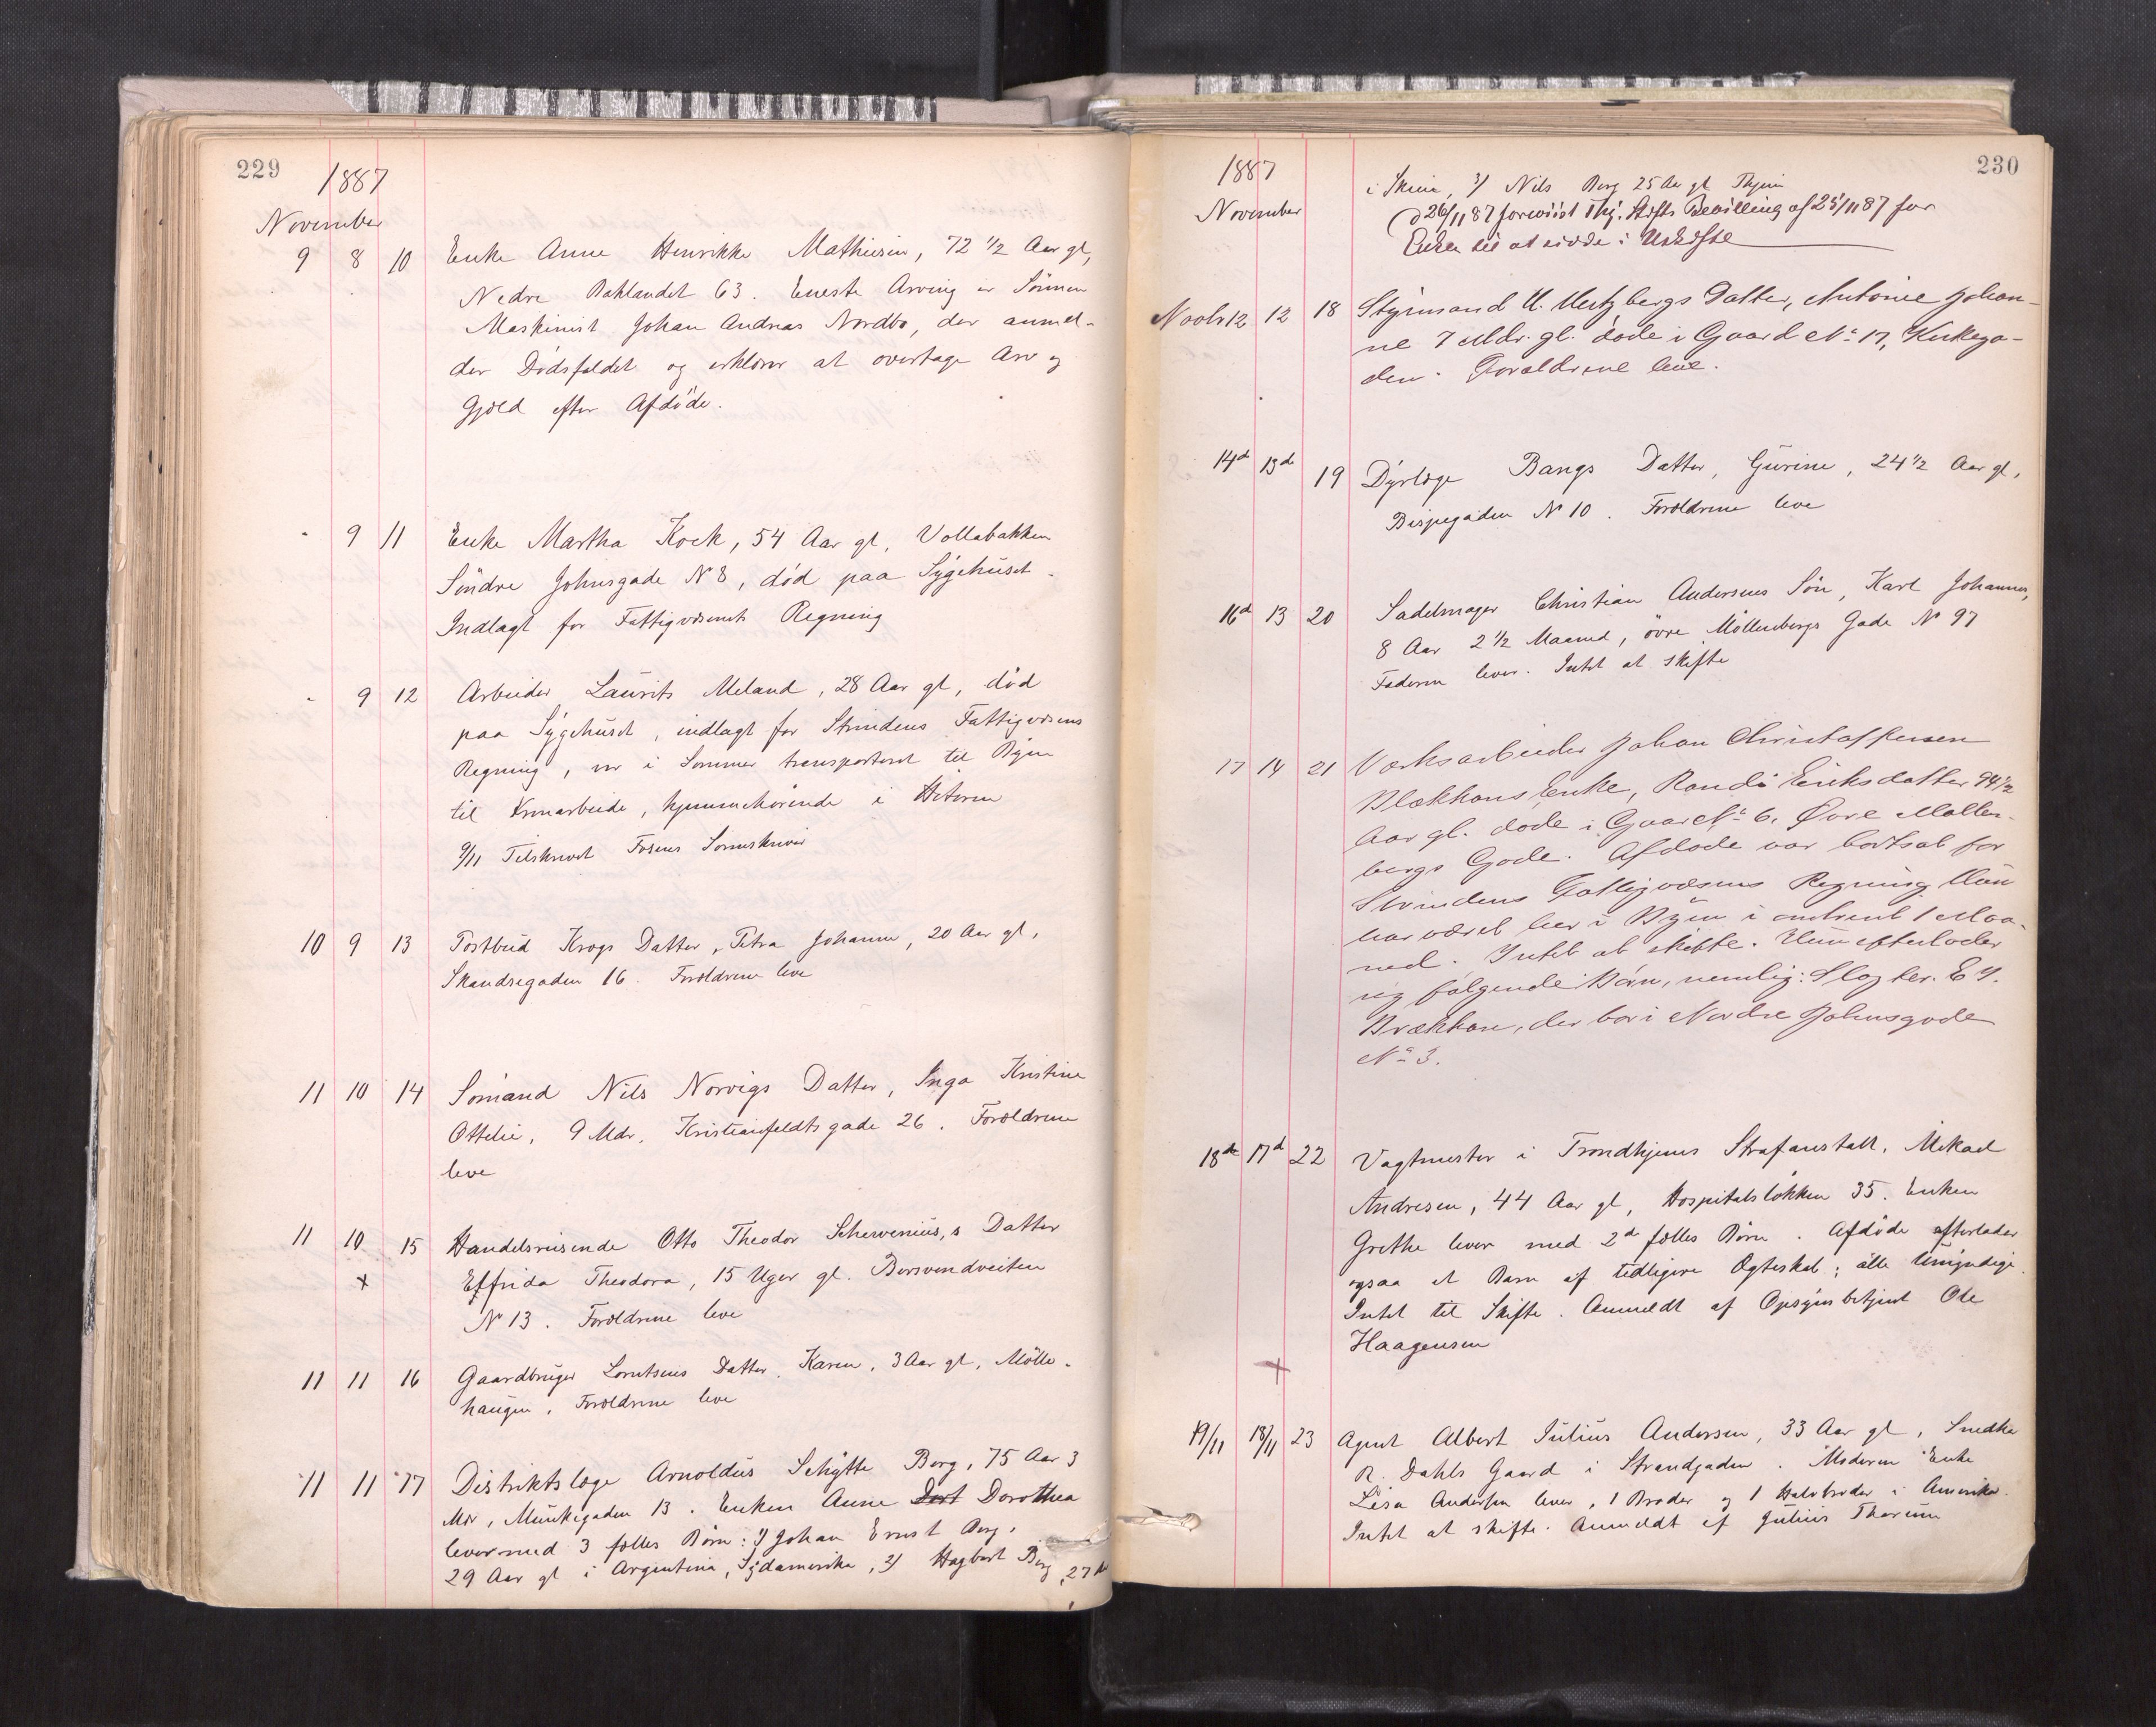 229
1887
November
9 8 10 Enke Anne Henrikke Mathiesen, 72 1/2 Aar gl,
Nedre Baklandet 63. Eneste Arving er Sönnen
Maskinist Johan Andreas Nordbö, der anmel-
der Dödsfaldet og erklærer at overtage Arv og
Gjæld efter Afdöde.
" 9 11 Enke Martha Kock, 54 Aar gl, Vollabakken
Söndre Johnsgade N 8, död paa Sygehuset.
Indlagt for Fattigvæsenets Regning
" 9 12 Arbeider Laurits Meland, 28 Aar gl, död
paa Sygehuset, indlagt for Strindens Fattigvæsens
Regning, var i Sommer transporteret til Byen
til Armarbeide, hjemmehörende i Hiteren
9/11 Tilskrevet Fosens Sorenskriver
10 9 13 Postbud Krogs Datter, Petra Johanne, 20 Aar gl,
Skandsegaden 16. Forældrene leve
11 10 14 Sömand Nils Norvigs Datter, Inga Kristine
Ottelie, 9 Mdr, Kristianfeldts gade 26. Forældrene
leve
11 10 15 Handelsreisende Otto Theodor Schevenius,s Datter
x Elfrida Theodora, 15 Uger gl. Bersvendveiten
N 13. Forældrene leve
11 11 16 Gaardbruger Lorntsens Datter, Karen, 3 Aar gl, Mölle-
haugen, Forældrene leve
11 11 17 Distriktslæge Arnoldus Schytte Berg, 75 Aar 3
Mdr, Munkegaden 13. Enken Anne Dort Dorothea
lever med 3 fælles Börn: 1) Johan Ernst Berg,
29 Aar gl i Argentina, Sydamerika, 2) Hagbart Berg, 27 Aar
230
1887
November
i Skien, 3) Nils Berg 25 Aar gl Thjem
d 26/11 87 foreviist Thj. Stifts Bevilling af 25/11 87 for
Enken til at sidde i Uskifte
Novbr 12 12 18 Styrmand H. Hertzbergs Datter, Antonie Johan-
ne 7 Mdr. gl. döde i Gaard No 17, Kirkega-
den. Forældrene leve.
14d 13d 19 Dyrlæge Bangs Datter, Gurine, 24 1/2 Aar gl,
Bispegaden N 10. Forældrene leve
16d 13 20 Sadelmager Christian Andersens Sön, Karl Johannes,
8 Aar 2 1/2 Maaned, övre Möllenbergs Gade N 97
Faderen lever. Intet at skifte
17 14 21 Værksarbeider Johan Christoffersen
Blækkans Enke, Randi Eriksdatter 94 1/2
Aar gl. döde i Gaard No 6, Øvre Möllen-
bergs Gade. Afdöde var bortsat for
Strindens Fattigvæsens Regning. Hun
har været her i Byen i omtrent 1 Maa-
ned. Intet at skifte. Hun efterlader
sig fölgende Börn, nemlig: Slagter. E J.
Brækkan, der bor i Nordre Johnsgade
No 3.
18de 17d 22 Vagtmester i Trondhjems Strafanstalt, Mikael
Andresen, 44 Aar gl, Hospitalslökken 35. Enken
Grethe lever med 2d fælles Börn. Afdöde efterlader
ogsaa et Barn af tidligere Ægteskab; alle Umyndige.
Intet til Skifte. Anmeldt af Opsynsbetjent Ole
Haagensen
x
19/11 18/11 23 Agent Albert Julius Andersen, 33 Aar gl, Smedke
R. Dahls Gaard i Strandgaden. Moderen Enke
Lisa Andersen lever, 1 Broder og 1 Halvbroder i Amerika.
Intet at skifte. Anmeldt af Julius Thorum